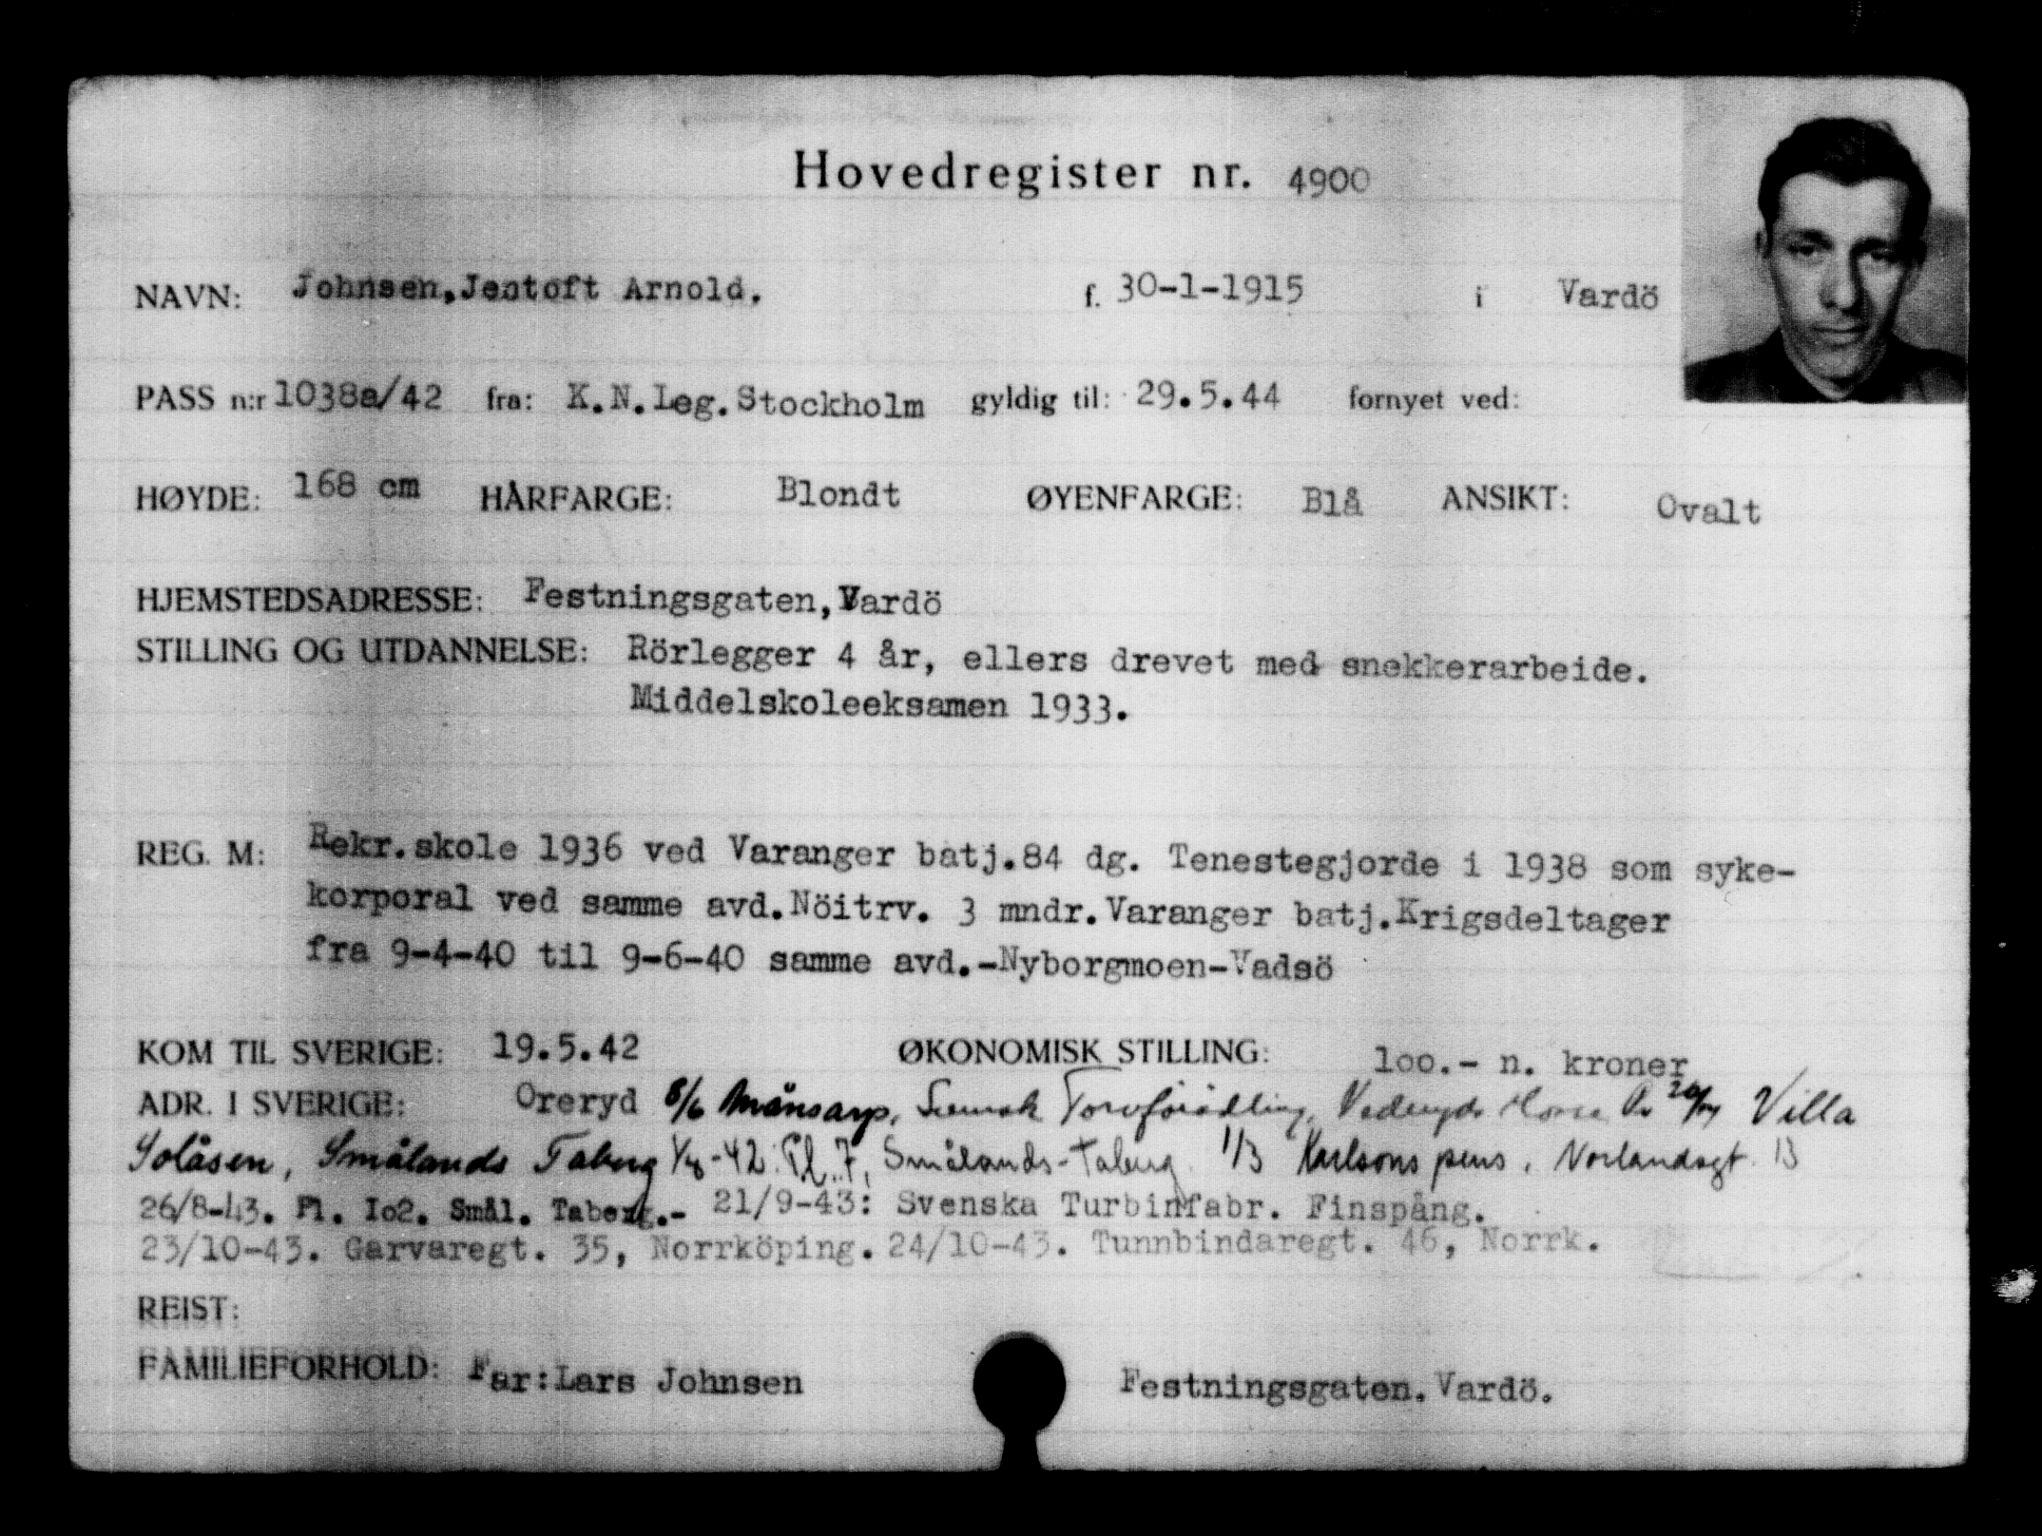 Hovedregister nr. 4900
NAVN: Johnsen, Jentoft Arnold. f. 30-1-1915 i Vardö
PASS n:r 1038a/42 fra: K.N.Leg.Stockholm gyldig til: 29.5.44 fornyet ved:
HØYDE: 168 cm HÅRFARGE: Blondt ØYENFARGE: Blå ANSIKT: Ovalt
HJEMSTEDSADRESSE: Festningsgaten, Vardö
STILLING OG UTDANNELSE: Rörlegger 4 år, ellers drevet med snekkerarbeide.
Middelskoleeksamen 1933.
REG. M: Rekr.skole 1936 ved Varanger batj.84 dg. Tenestegjorde i 1938 som syke-
korporal ved samme avd.Nöitrv. 3 mndr.Varanger batj.Krigsdeltager
fra 9-4-40 til 9-6-40 samme avd.-Nyborgmoen-Vadsö
KOM TIL SVERIGE: 19.5.42 ØKONOMISK STILLING: 1oo.- n. kroner
ADR. I SVERIGE: Oreryd 8/6 Månsarp, Svensk Torvförädling, Villa
Solåsen, Smålands Taberg -42. Pl. 7, Smålands-Taberg. 1/3 Karlsons pens. Norlandsgt. 13
26/8-43. Pl. Io2. Smål. Taberg.- 21/9-43: Svenska Turbinfabr. Finspång.
23/10-43. Garvaregt. 35, Norrköping. 24/10-43. Tunnbindaregt. 46, Norrk.
REIST:
FAMILIEFORHOLD: Far:Lars Johnsen Festningsgaten. Vardö.